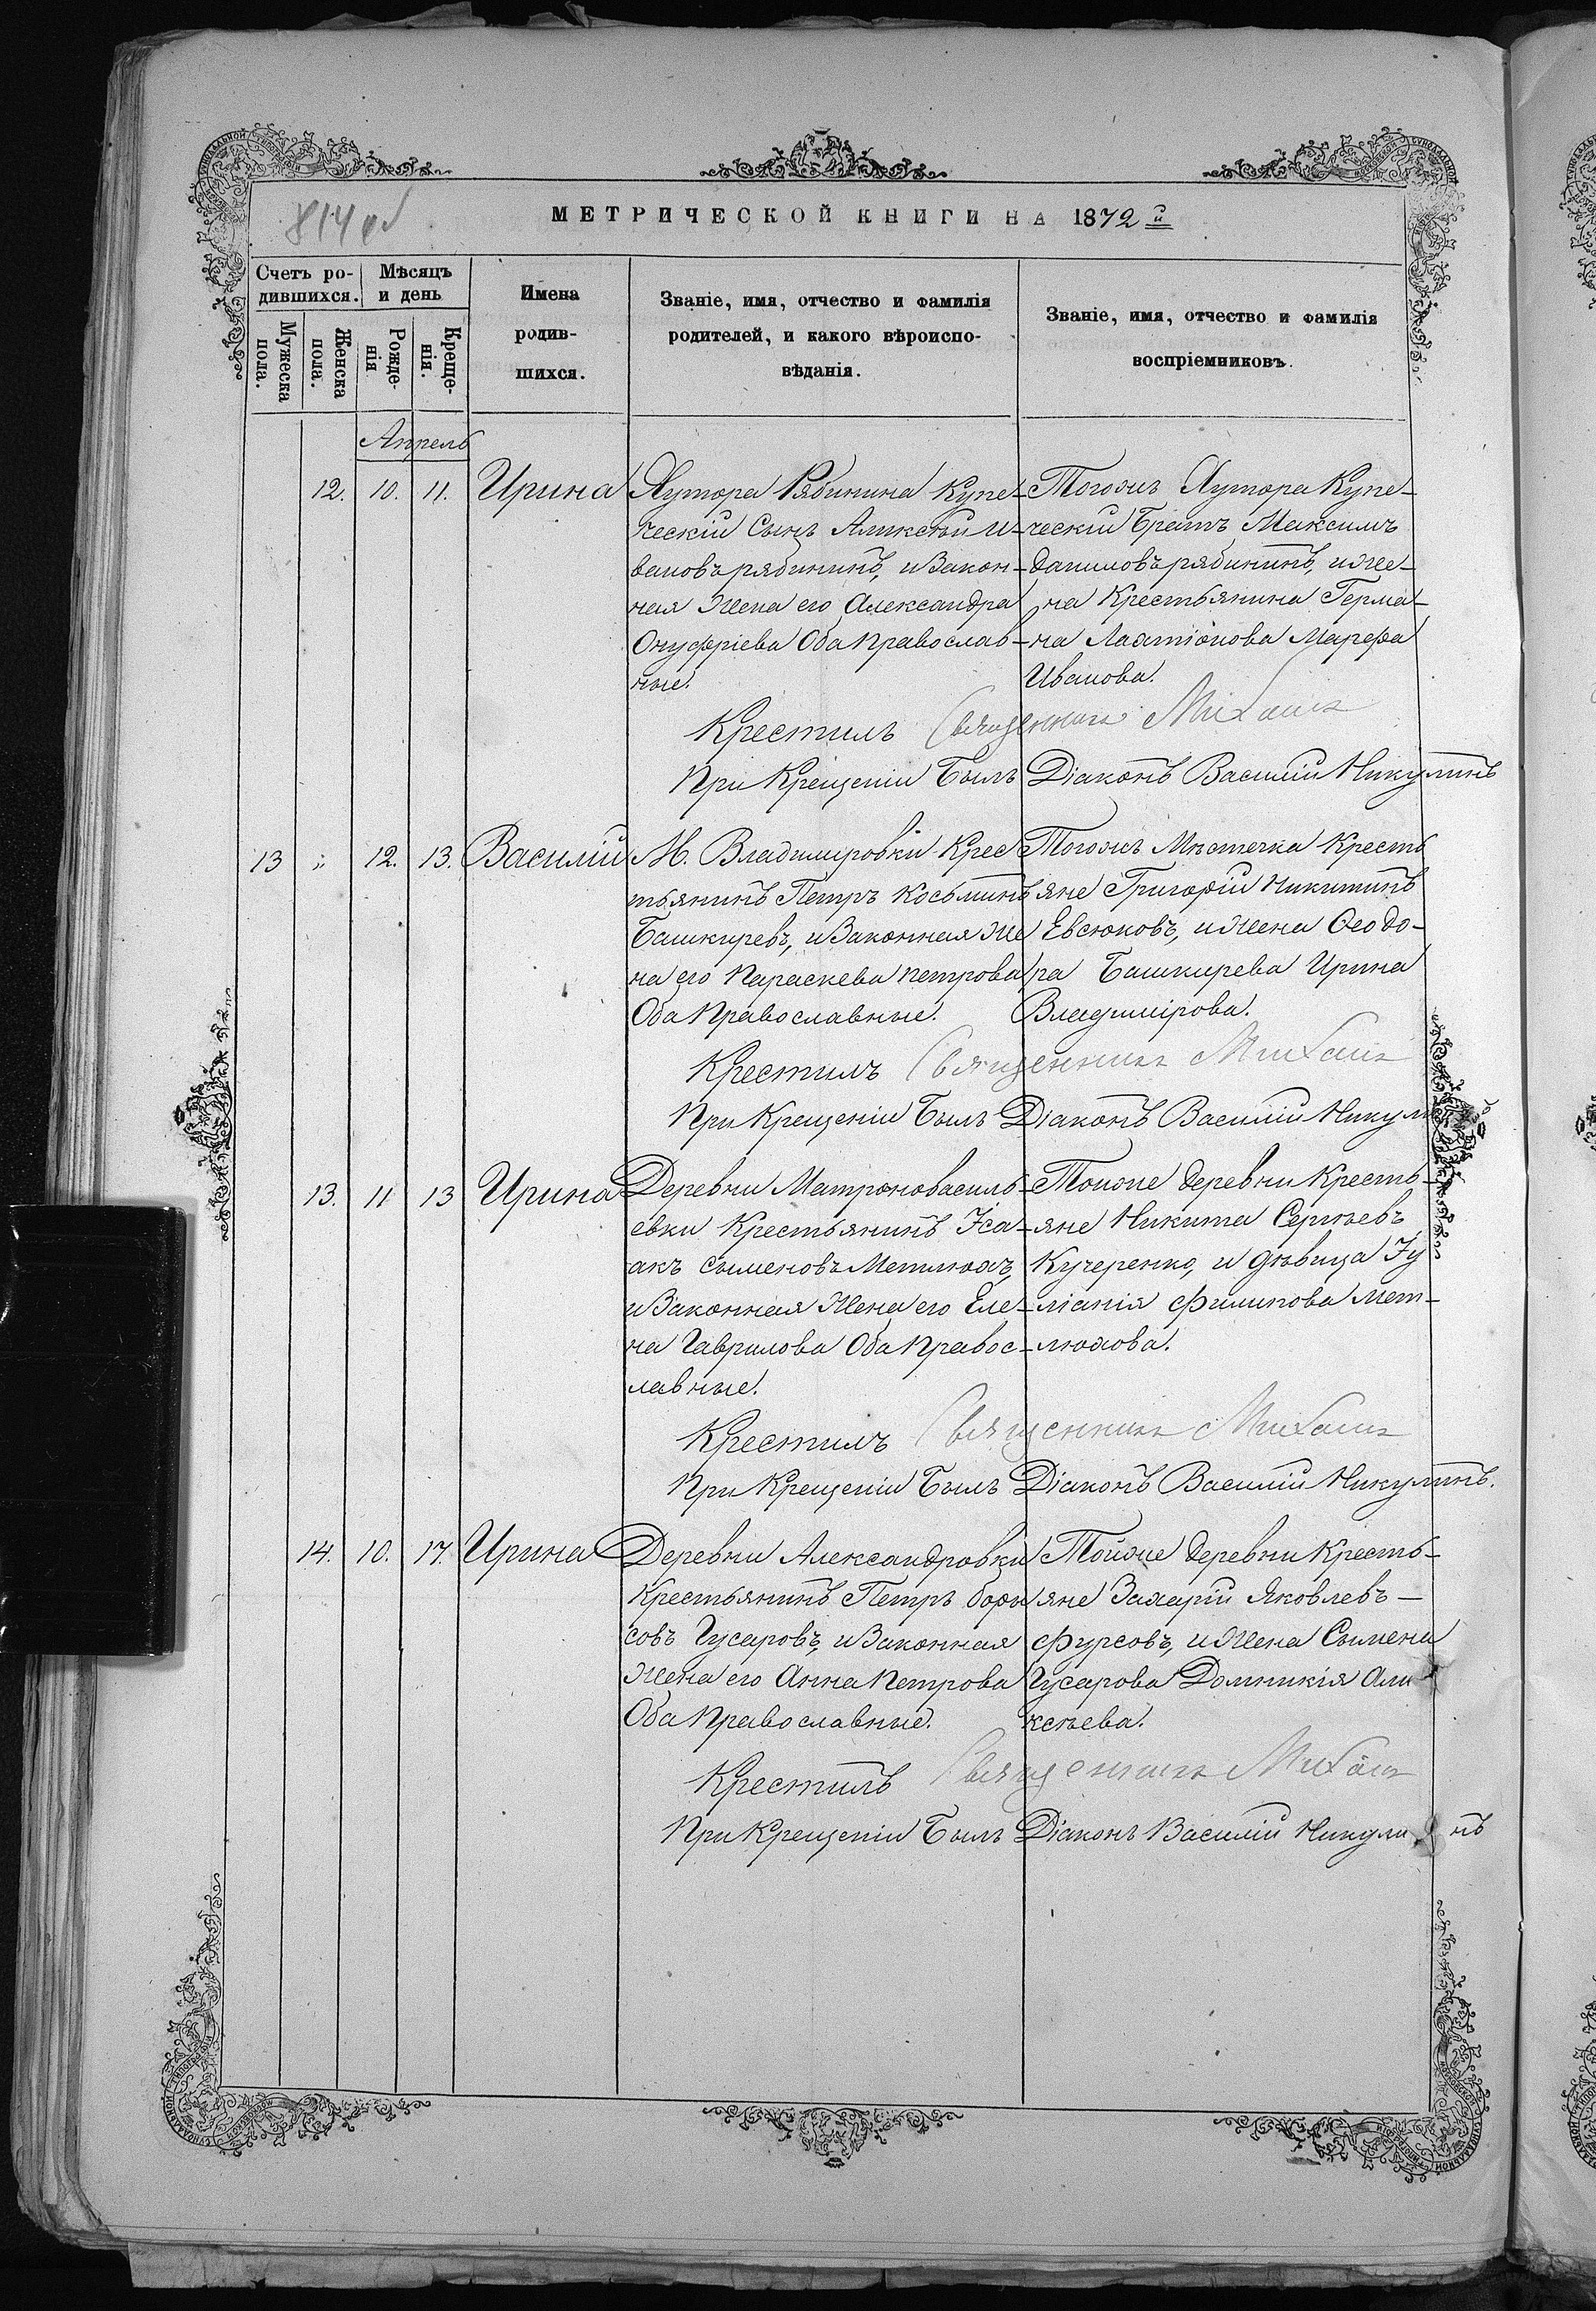 814 об
МЕТРИЧЕСКОЙ КНИГИ НА 1872 й
Счетъ ро-
дившихся.
Мѣсяцъ
и день
Мужеска
пола.
Женска
пола.
Рожде-
нія
Креще-
нія.
Имена
родив-
шихся.
Званіе, имя, отчество и фамилія
родителей, и какого вѣроиспо-
вѣданія.
Званіе, имя, отчество и фамилія
воспріемниковъ.
Апрель
12. 10. 11. Ирина
Хутора Рябинина Купе-
ческій Сынъ Аликсѣй И-
вановъ рябининъ, и Закон-
ная Жена его Александра
Онуфріева Оба Православ-
ные.
Тогожъ Хутора Купе-
ческій Братъ Максимъ
даниловъ рябининъ, и же-
на Крестьянина Герма-
на Марфа
Иванова.
Крестилъ Священникъ Михаилъ
При Крещеніи Былъ Діаконъ Василій Никулинъ
13 " 12. 13. Василій
М. Владиміровки Крес
тьянинъ Петръ Косьминъ
Башкиревъ, и Законная Же
на его Параскева петрова
Оба Православные.
Тогожъ Мѣстечка Кресть
яне Григорій Никитинъ
Евсюковъ, и жена Ѳеодо-
ра Башкирева Ирина
Владимірова.
Крестилъ Священникъ Михаилъ
При Крещеніи Былъ Діаконъ Василій Никулинъ
13. 11 13 Ирина
Деревни Матроновасиль-
евки Крестьянинъ Іса-
акъ Сыменовъ Метлюхъ,
и Законная Жена его Еле-
на Гаврилова Оба Правос-
лавные.
Тойже деревни Кресть-
яне Никита Сергѣевъ
Кучеренко, и дѣвица Іу
ліанія Филипова Мет-
люхова.
Крестилъ Священникъ Михаилъ
При Крещеніи Былъ Діаконъ Василій Никулинъ.
14. 10. 17. Ирина
Деревни Александровки
Крестьянинъ Петръ бори
совъ Гусаровъ, и Законная
Жена его Анна Петрова
Оба Православные.
Тойже деревни Кресть-
яне Захарій Яковлевъ —
Фурсовъ, и Жена Сымена
Гусарова Домникія Али
ксѣева.
Крестилъ Священникъ Михаилъ
При Крещеніи Былъ Діаконъ Василій Никулинъ